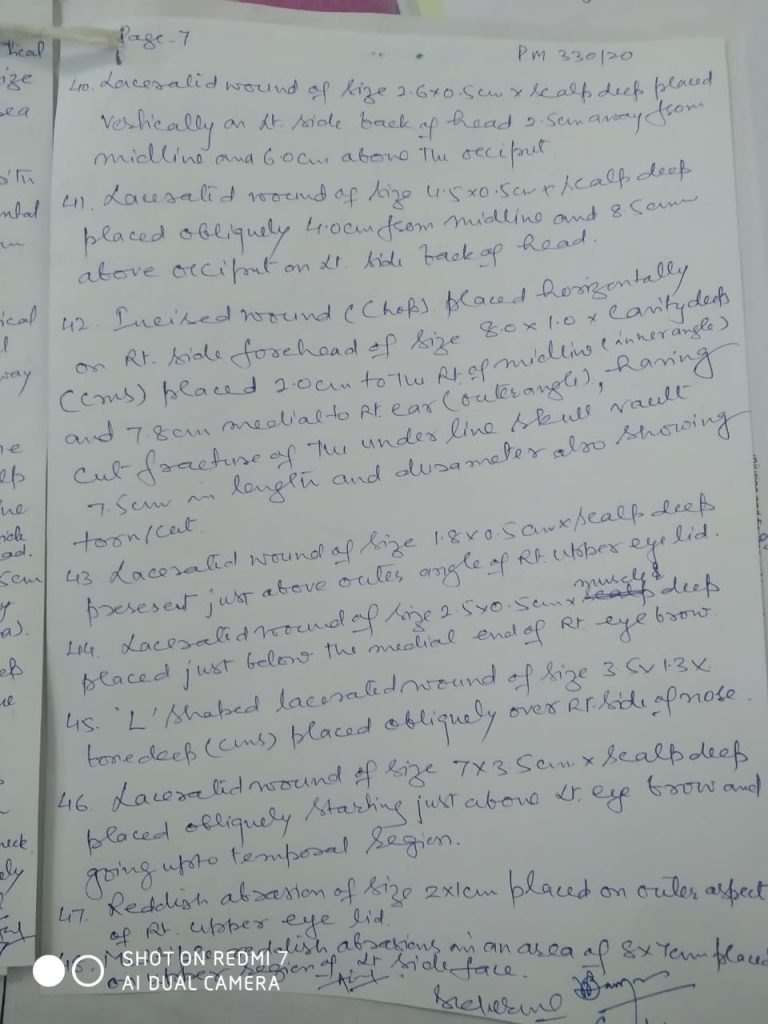 Page-7
PM 330/20
40. Lacerated wound of size 2.6x0.5cm x scalp deep placed
vertically on Lt. side back of head 2.5cm away from
midline and 6.0cm above the occiput.
41. Lacerated wound of size 4.5x0.5cm x scalp deep
placed obliquely 4.0cm from midline and 8.5cm
above occiput on Lt. side back of head.
42. Incised wound (Chop) placed horizontally
on Rt. side forehead of size 8.0 x 1.0 x cavity deep
(cms) placed 2.0cm to the Rt. of midline (inner angle)
and 7.8cm medial to Rt. ear (outer angle), having
cut fracture of the under line skull vault
7.5cm in length and durameter also showing
torn/cut.
43. Lacerated wound of size 1.8x0.5cm x scalp deep
present just above outer angle of Rt. upper eye lid.
44. Lacerated wound of size 2.5x0.5cm x muscle deep
placed just below the medial end of Rt. eye brow.
45. 'L' shaped lacerated wound of size 3.5x1.3x
bone deep (cms) placed obliquely over Rt. side of nose.
46. Lacerated wound of size 7x3.5cm x scalp deep
placed obliquely starting just above Lt. eye brow and
going upto temporal region.
47. Reddish abrasion of size 2x1cm placed on outer aspect
of Rt. upper eye lid.
48. reddish abrasions in an area of 8x7cm placed
on upper region of Lt. side face.
SHOT ON REDMI 7
AI DUAL CAMERA